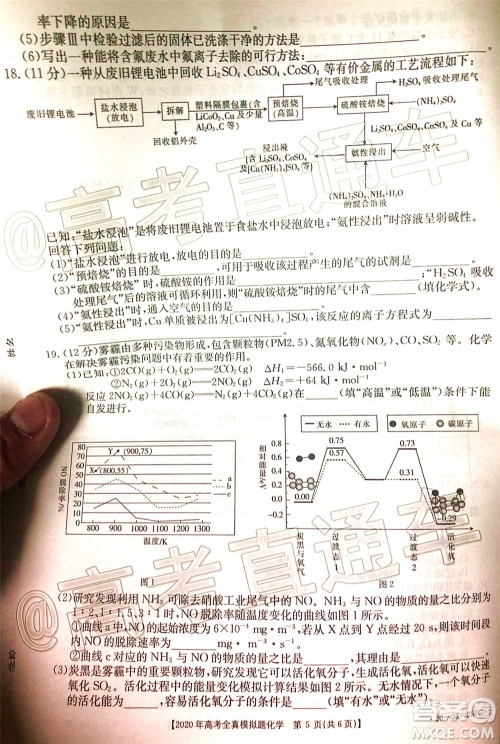 率下降的原因是。
(5)步骤Ⅲ中检验过滤后的固体已洗涤干净的方法是。
(6)写出一种能将含氟废水中氟离子去除的可行方法:。
18.(11分)一种从废旧锂电池中回收Li₂SO₄、CuSO₄、CoSO₄等有价金属的工艺流程如下:
废旧锂电池
盐水浸泡(放电)
拆解
回收铝外壳
塑料隔膜包裹(含LiCoO₂、Cu及少量Al₂O₃、C等)
预焙烧(高温)
尾气吸收处理
H₂SO₄吸收处理尾气
硫酸铵焙烧
(NH₄)₂SO₄
浸出液(含Li₂SO₄、CoSO₄及[Cu(NH₃)₄]SO₄)
氨性浸出
空气
NH₃和(NH₄)₂SO₄的混合溶液
已知:“盐水浸泡”是将废旧锂电池置于食盐水中浸泡放电;“氨性浸出”时溶液呈弱碱性。
回答下列问题:
(1)“盐水浸泡”进行放电,放电的目的是。
(2)“预焙烧”的目的是,可用于吸收该过程产生的尾气的试剂是。
(3)“硫酸铵焙烧”时,硫酸铵的作用是;“H₂SO₄吸收
处理尾气”后的溶液可循环利用,则“硫酸铵焙烧”时的尾气中含(填化学式)。
(4)“氨性浸出”时,通入空气的目的是。
(5)“氨性浸出”时,Cu转变为[Cu(NH₃)₄]SO₄,该反应的离子方程式为
。
19.(12分)雾霾由多种污染物形成,包含颗粒物(PM2.5)、氮氧化物(NOₓ)、CO、SO₂等。化学
在解决雾霾污染问题中有着重要的作用。
(1)已知:①2CO(g)+O₂(g)═2CO₂(g) ΔH₁=−566.0 kJ·mol⁻¹
②N₂(g)+O₂(g)═2NO(g) ΔH₂=+64 kJ·mol⁻¹
反应2CO(g)+2NO(g)═N₂(g)+2CO₂(g)在(填“高温”或“低温”)条件下能
自发进行。
NO脱除率/%
80
70
60
50
40
30
20
10
0
Y (900,75)
X (800,55)
a
b
c
800 900 1000 1100 1200 1300
温度/K
图1
无水 有水 氧原子 碳原子
相对能量
0.8
0.4
0.0
0.75
0.57
0.73
0.31
0.00
-0.29
炭黑与氧气
过渡态一
过渡态二
活化氧
图2
(2)研究发现利用NH₃可除去硝酸工业尾气中的NO。NH₃与NO的物质的量之比分别为
1∶2,1∶1.5,3∶1时,NO脱除率随温度变化的曲线如图1所示。
①曲线a中NO的起始浓度为6×10⁻⁴ mg·m⁻³,若从X点到Y点经过20 s,则该时间段
内NO的脱除速率为mg·m⁻³·s⁻¹。
②曲线c对应的NH₃与NO的物质的量之比是,其理由是。
(3)炭黑是雾霾中的重要颗粒物,研究发现它可以活化氧分子,生成活化氧,活化氧可以快速
氧化SO₂。活化过程的能量变化模拟计算结果如图2所示。无水情况下,一个氧
分子的活化能为,容易活化氧分子的条件是(填“有水”或“无水”)。
【2020年高考全真模拟题化学 第5页(共6页)】
姓名
学校
@高考直通车
@高考直通车